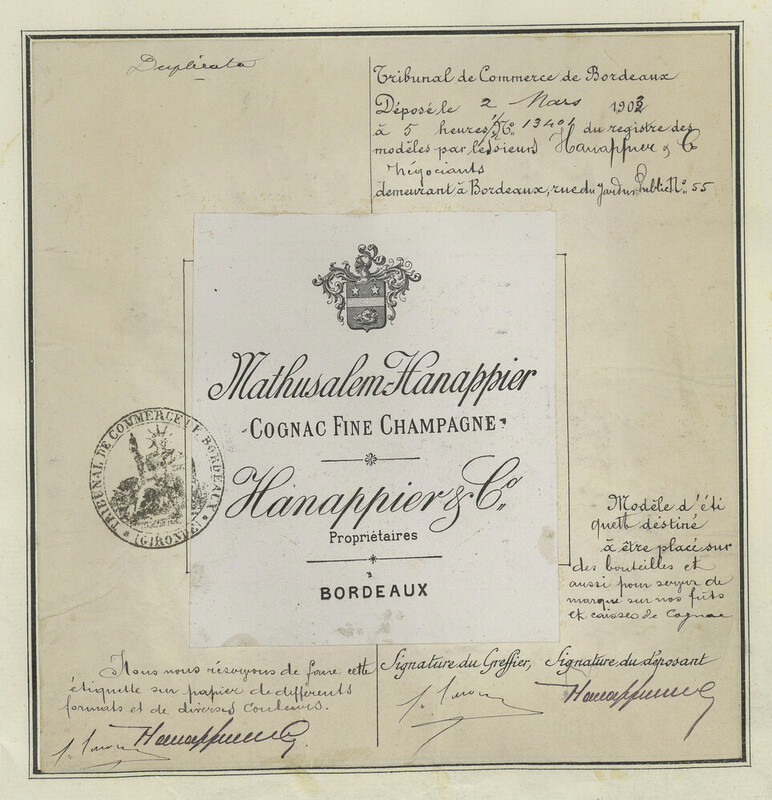 Duplicata
Tribunal de Commerce de Bordeaux
Déposé le 2 Mars 1903
à 5 heures ½ No. 13401 du registre des
modèles par les sieurs Hanappier & Co
négociants
demeurant à Bordeaux, rue du Jardin Public No. 55
Mathusalem-Hanappier
COGNAC FINE CHAMPAGNE
Hanappier & Co.
Propriétaires
BORDEAUX
TRIBUNAL DE COMMERCE DE BORDEAUX
(GIRONDE)
Modèle d'éti
quett destiné
à être placé sur
des bouteilles et
aussi pour servir de
marque sur nos fûts
et caisses de Cognac
Nous nous réservons de faire cette
étiquette sur papier de différents
formats et de diverses couleurs.
Hanappier & Co
Signature du Greffier, Signature du déposant
Hanappier & Co